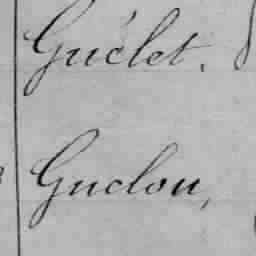 Guélet.
Guclou,